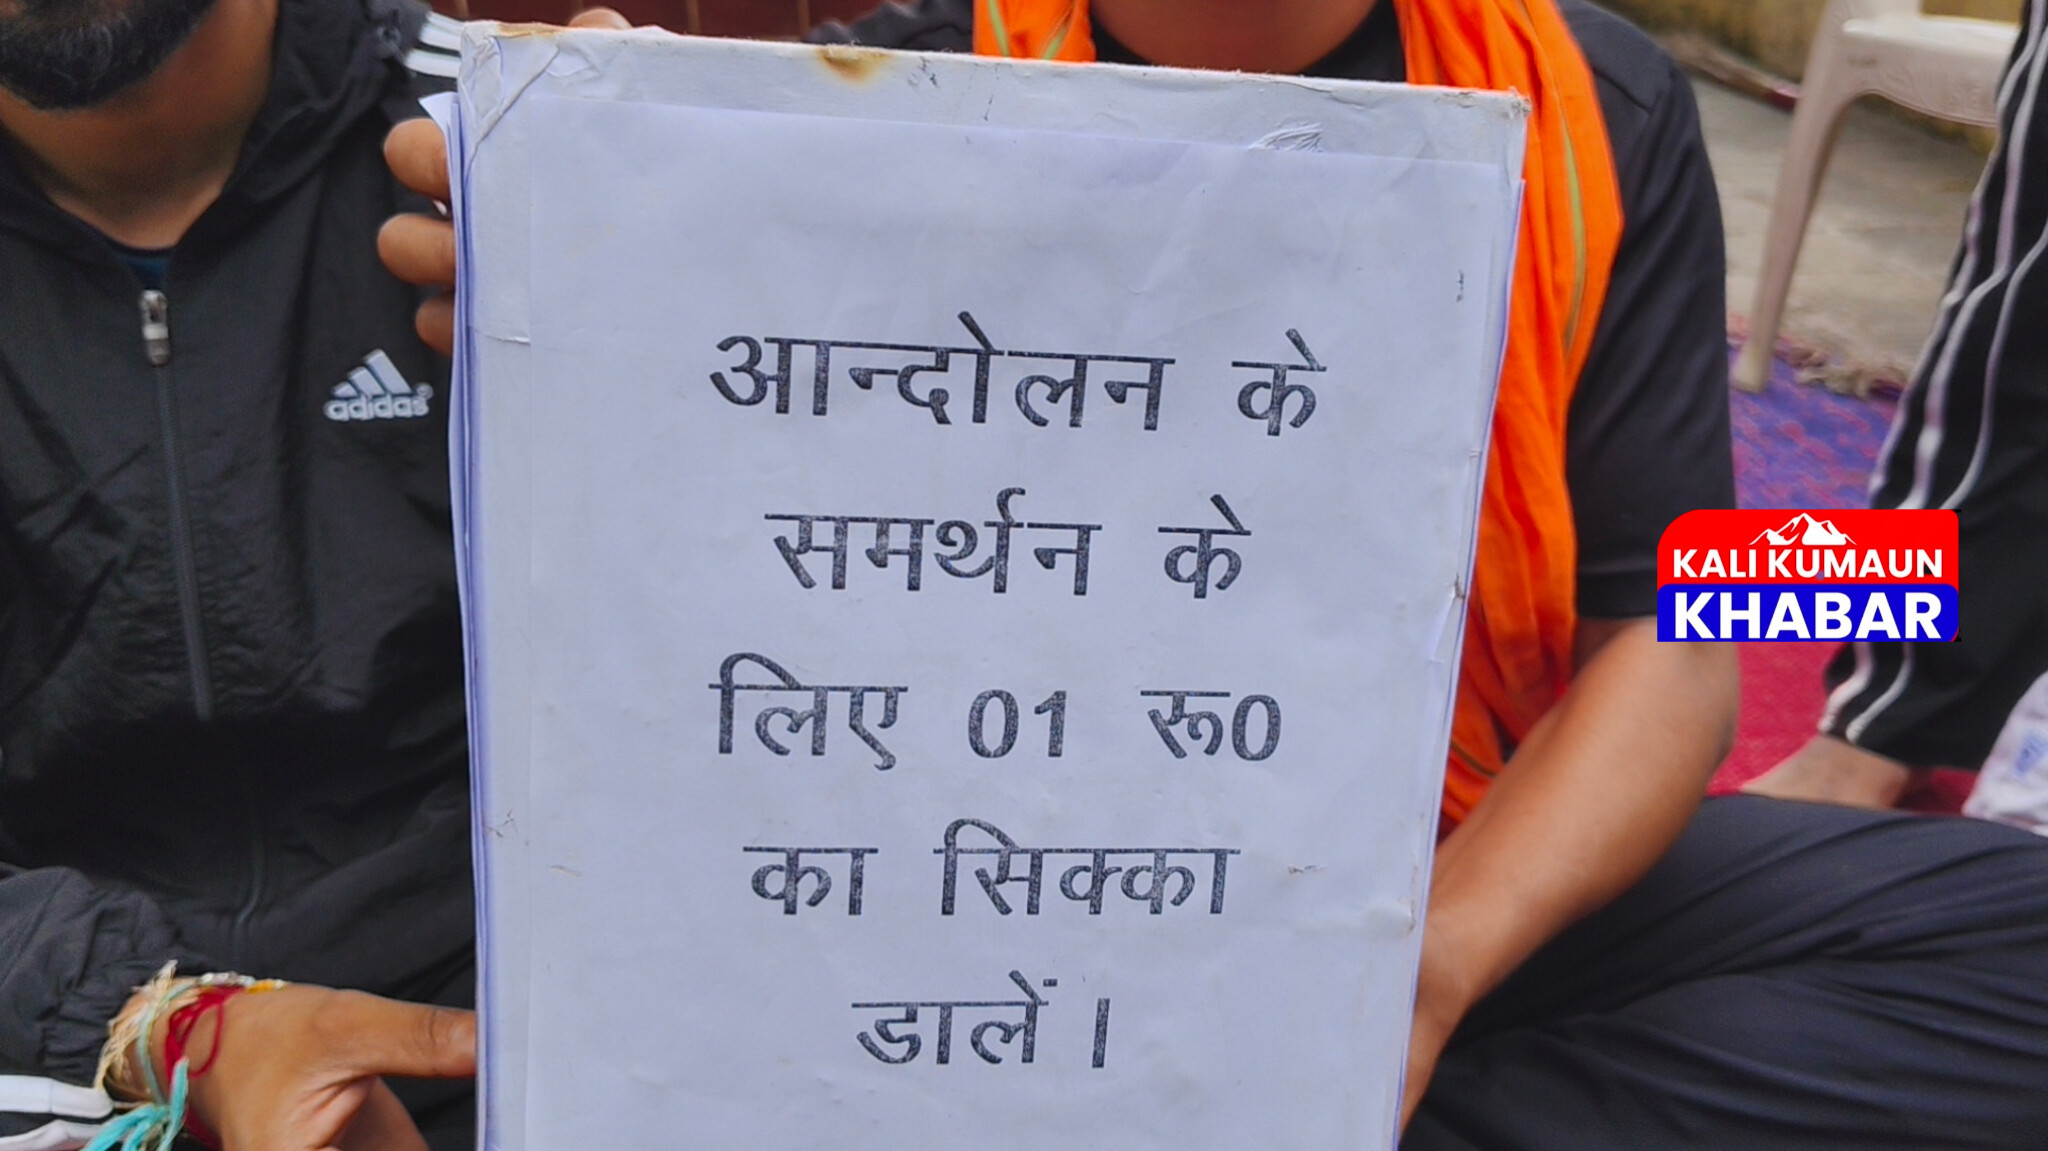 adidas
आन्दोलन के
समर्थन के
लिए 01 रू0
का सिक्का
डालें।
KALI KUMAUN
KHABAR